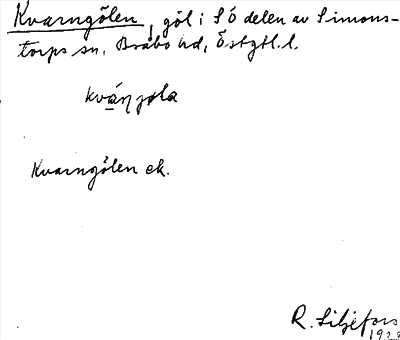 Kvarngölen, göl i SÖ delen av Simons-
torps sn, Bråbo hd, Östgtl. l.
kvá̱ɳ jøla
Kvarngölen ek.
R. Liljefors